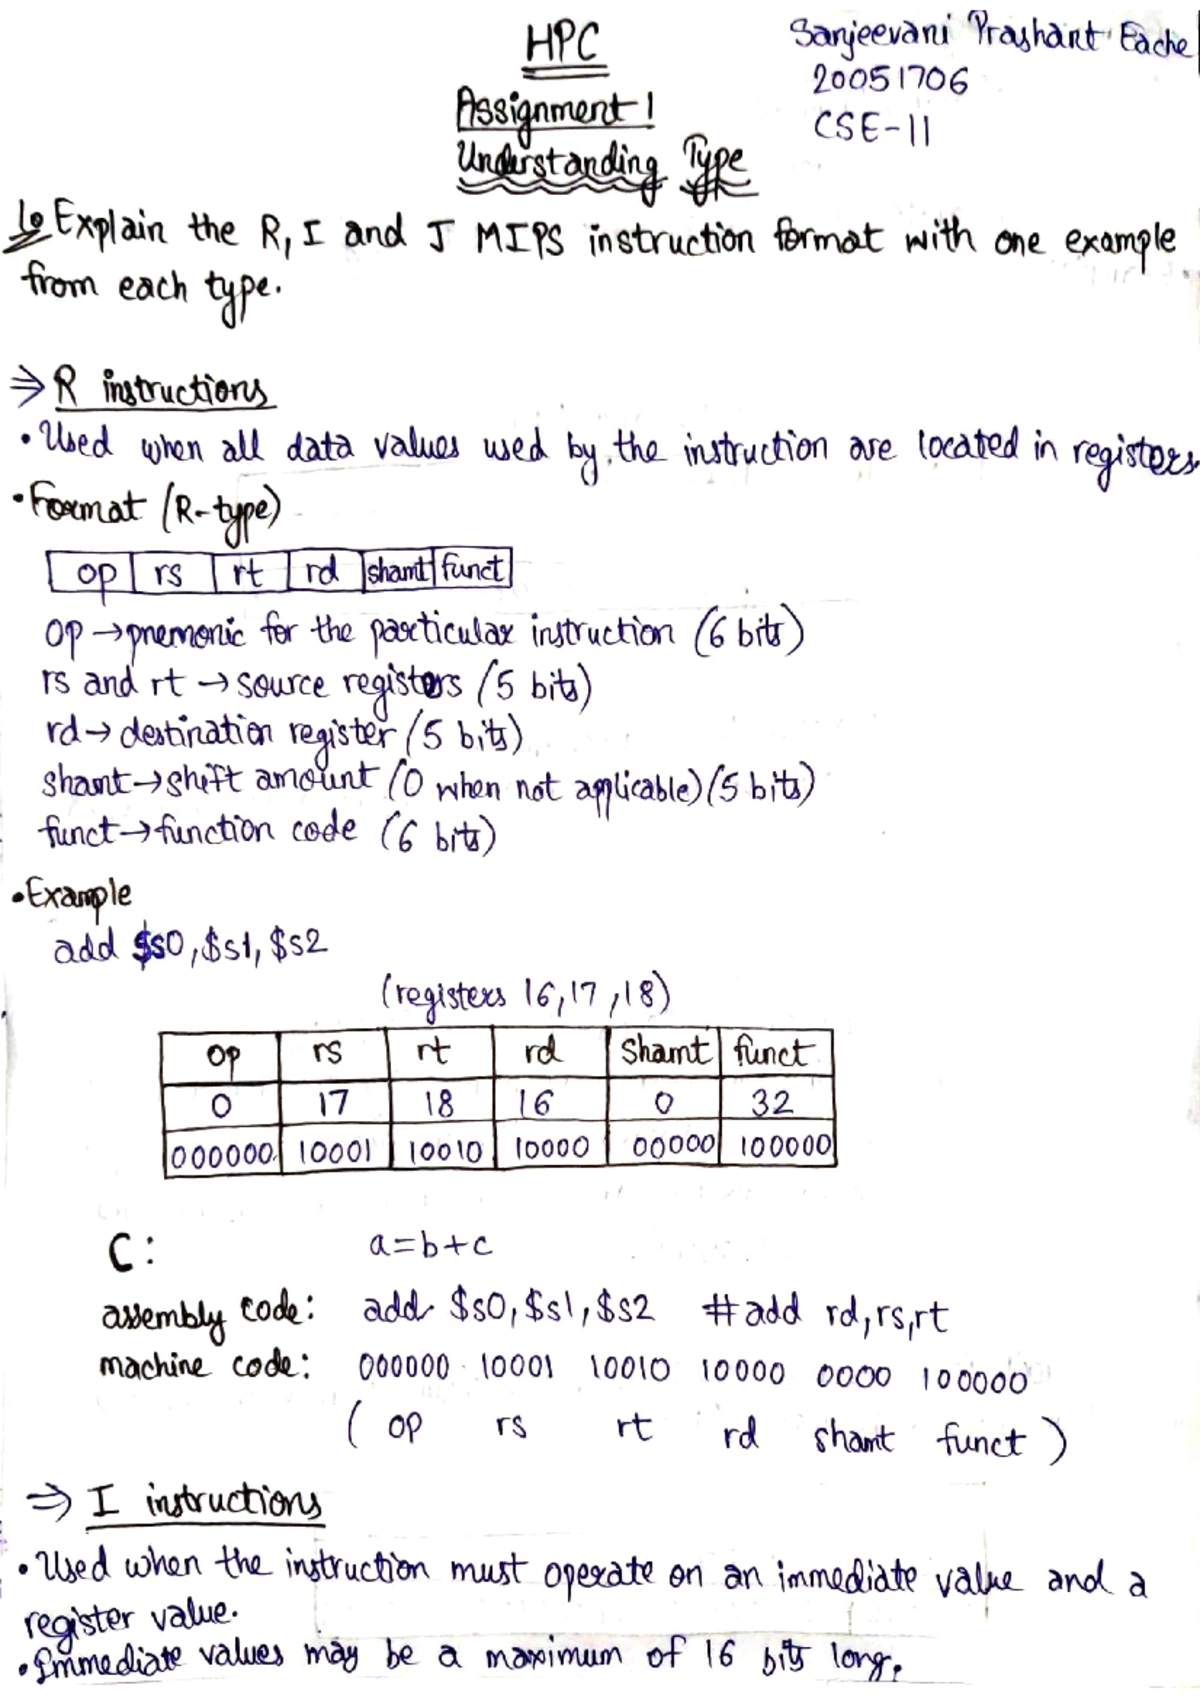 HPC
Sanjeevani Prashant Eache
20051706
CSE-11
Assignment-1
Understanding Type
1. Explain the R, I and J MIPS instruction format with one example
from each type.
⇒ R instructions
• Used when all data values used by the instruction are located in registers.
• Format (R-type)
op rs rt rd shamt funct
op → pnemonic for the particular instruction (6 bits)
rs and rt → source registers (5 bits)
rd → destination register (5 bits)
shamt → shift amount (0 when not applicable) (5 bits)
funct → function code (6 bits)
• Example
add $s0, $s1, $s2
(registers 16, 17, 18)
op rs rt rd shamt funct
0 17 18 16 0 32
000000 10001 10010 10000 00000 100000
C: a=b+c
assembly code: add $s0, $s1, $s2 #add rd, rs, rt
machine code: 000000 10001 10010 10000 0000 100000
( op rs rt rd shamt funct )
⇒ I instructions
• Used when the instruction must operate on an immediate value and a
register value.
• Immediate values may be a maximum of 16 bits long.